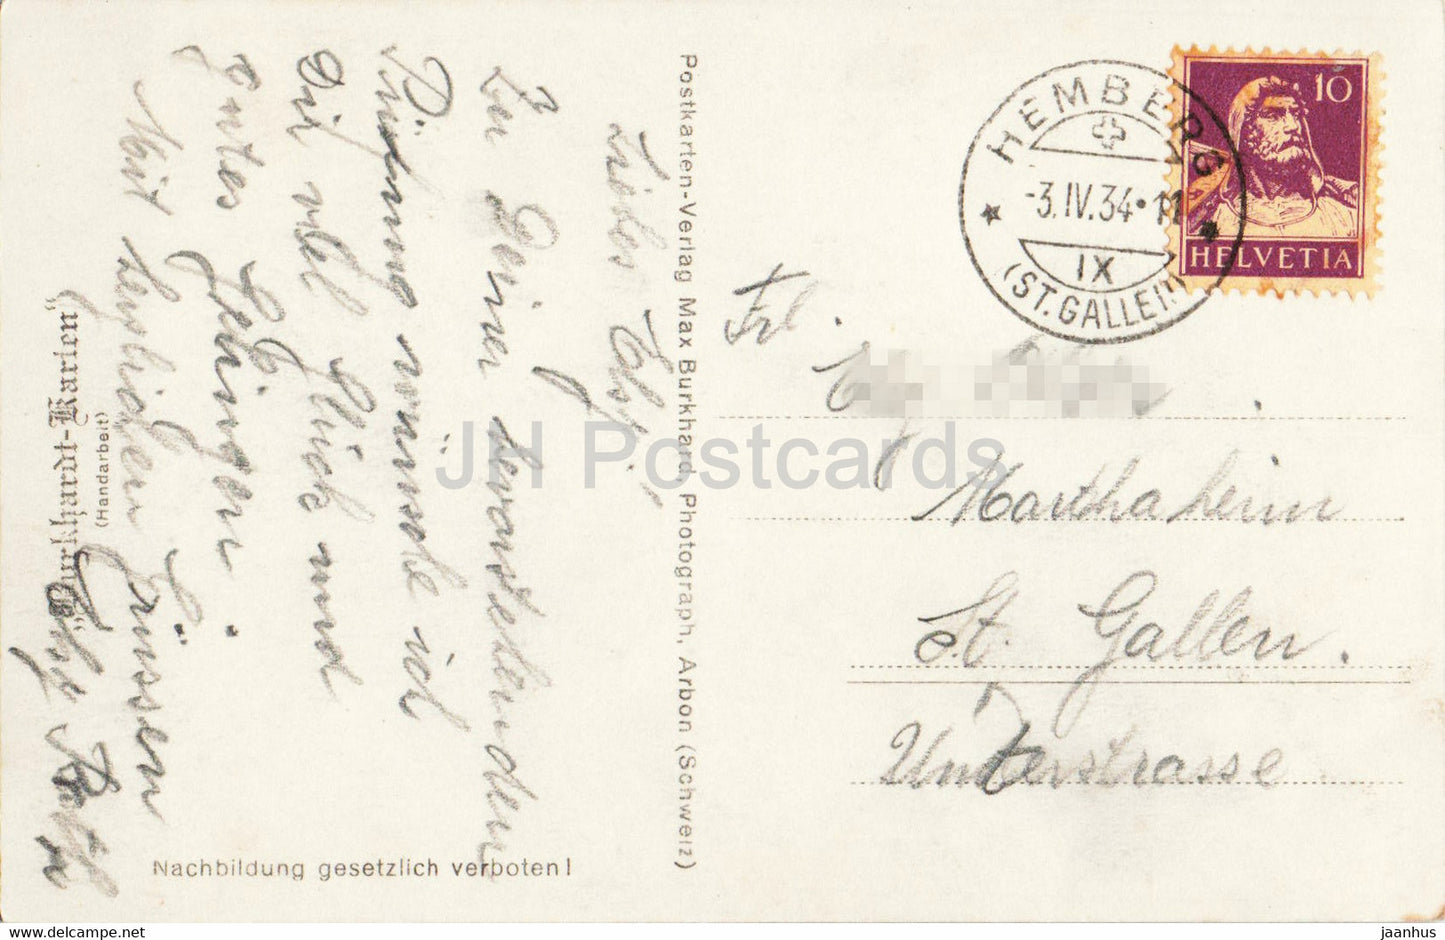 Liebes
Zu Deiner bevorstehenden
Prüfung wünsche ich
Dir viel Glück und
gutes Gelingen.
Mit herzlichen Grüssen
"Burkhardt-Karten"
(Handarbeit)
Nachbildung gesetzlich verboten!
Postkarten-Verlag Max Burkhard, Photograph, Arbon (Schweiz)
HEMBERG
-3.IV.34•11
IX
(ST.GALLEN)
10
HELVETIA
Frl.
Marthaheim
St. Gallen.
Unterstrasse
JH Postcards
jaanhus
www.finncoll.com